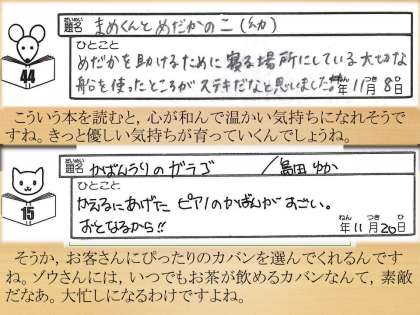 だいめい
題名 まめくんとめだかのこ(幼)
ひとこと
めだかを助けるために寝る場所にしている大切な
船を使ったところがステキだなと思いました。 年11月8日
44
こういう本を読むと，心が和んで温かい気持ちになれそうで
すね。きっと優しい気持ちが育っていくんでしょうね。
だいめい
題名 かばんうりのガラゴ /島田ゆか
ひとこと
かえるにあげたピアノのかばんがすごい。
おとなるから!!
ねん つき ひ
年11月20日
15
そうか，お客さんにぴったりのカバンを選んでくれるんです
ね。ゾウさんには，いつでもお茶が飲めるカバンなんて，素敵
だなあ。大忙しになるわけですよね。